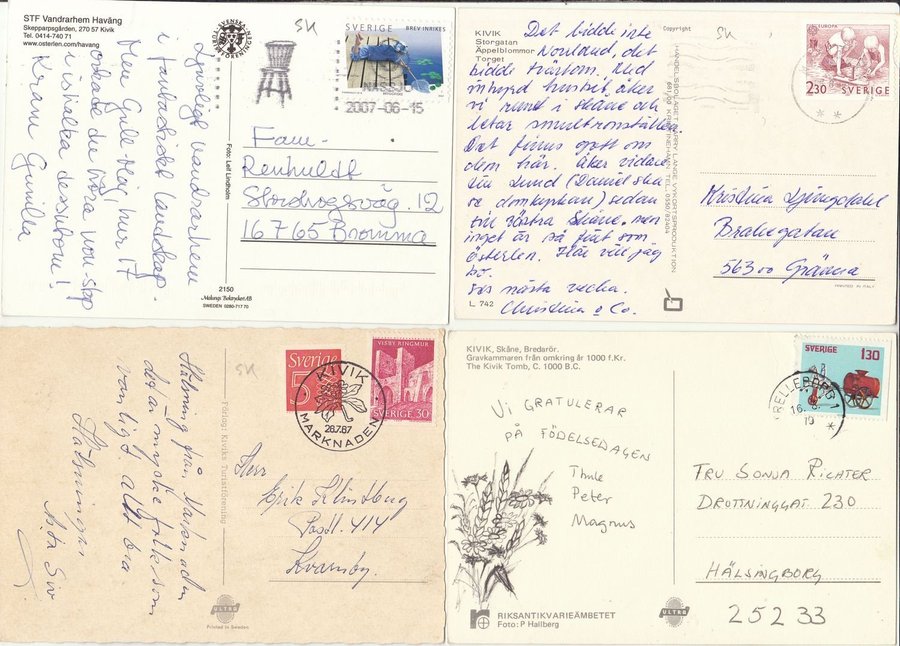 STF Vandrarhem Haväng
Skepparpsgården, 270 57 Kivik
Tel. 0414-740 71
www.osterlen.com/havang
SVENSKA
SK
SVERIGE BREV INRIKES
NÄSSJÖ
2007-06-15
Ljuvligt vandrarhem
i fantastiskt landskap.
Men Gull-Maj! hur i?
orkade du köra non-stop
i ishalka dessutom!
Kram Gunilla
Foto: Leif Lindholm
Fam.
Renhuldt
Stordrogsväg. 12
167 65 Bromma
2150
Malungs Boktryckeri AB
SWEDEN 0280-717 70
KIVIK
Storgatan
Äppelblommor
Torget
Copyright
SK
EUROPA
2.30 SVERIGE
Det blidde inte
Norrland, det
blidde tvärtom. Med
inhyrd husbil, åker
vi runt i Skåne och
letar smultronställen.
Det finns gott om
dem här. Åker vidare
till Lund (Daniel ska
se domkyrkan) sedan
till Västra Skåne, men
inget är så fint som
Österlen. Här vill jag
bo.
Ses nästa vecka.
Christina & Co.
L 742
HANDELSBOLAGET HARRY LANGE VYKORTSPRODUKTION
681 00 KRISTINEHAMN TEL. 0550/82404
Kristina Ljungdahl
Brahegatan
563 00 Gränna
PRINTED IN ITALY
SK
Sverige
VISBY RINGMUR
SVERIGE 30
KIVIK
MARKNADEN
28.7.67
Hälsning från Marknaden
där mycket folk som
vanligt, allt bra
Hälsningar
Siv
Förlag: Kiviks Turistförening
Herr
Erik Klintberg
Postl. 414
Kvarnby.
ULTRA
Printed in Sweden
KIVIK, Skåne, Bredarör.
Gravkammaren från omkring år 1000 f.Kr.
The Kivik Tomb, C. 1000 B.C.
SVERIGE 130
TRELLEBORG 1
VI GRATULERAR
PÅ FÖDELSEDAGEN
Thule
Peter
Magnus
FRU SONJA RICHTER
DROTTNINGGAT 230
HÄLSINGBORG
252 33
RIKSANTIKVARIEÄMBETET
Foto: P Hallberg
ULTRA